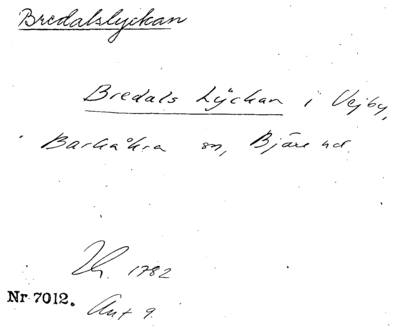 Bredalslyckan
Bredals Lyckan i Vejby,
Barkåkra sn, Bjäre hd.
1782
Nr 7012.
Akt 9.